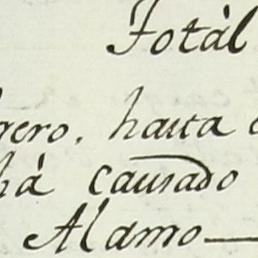 Totàl
rero. hasta
hà causado
Alamo—